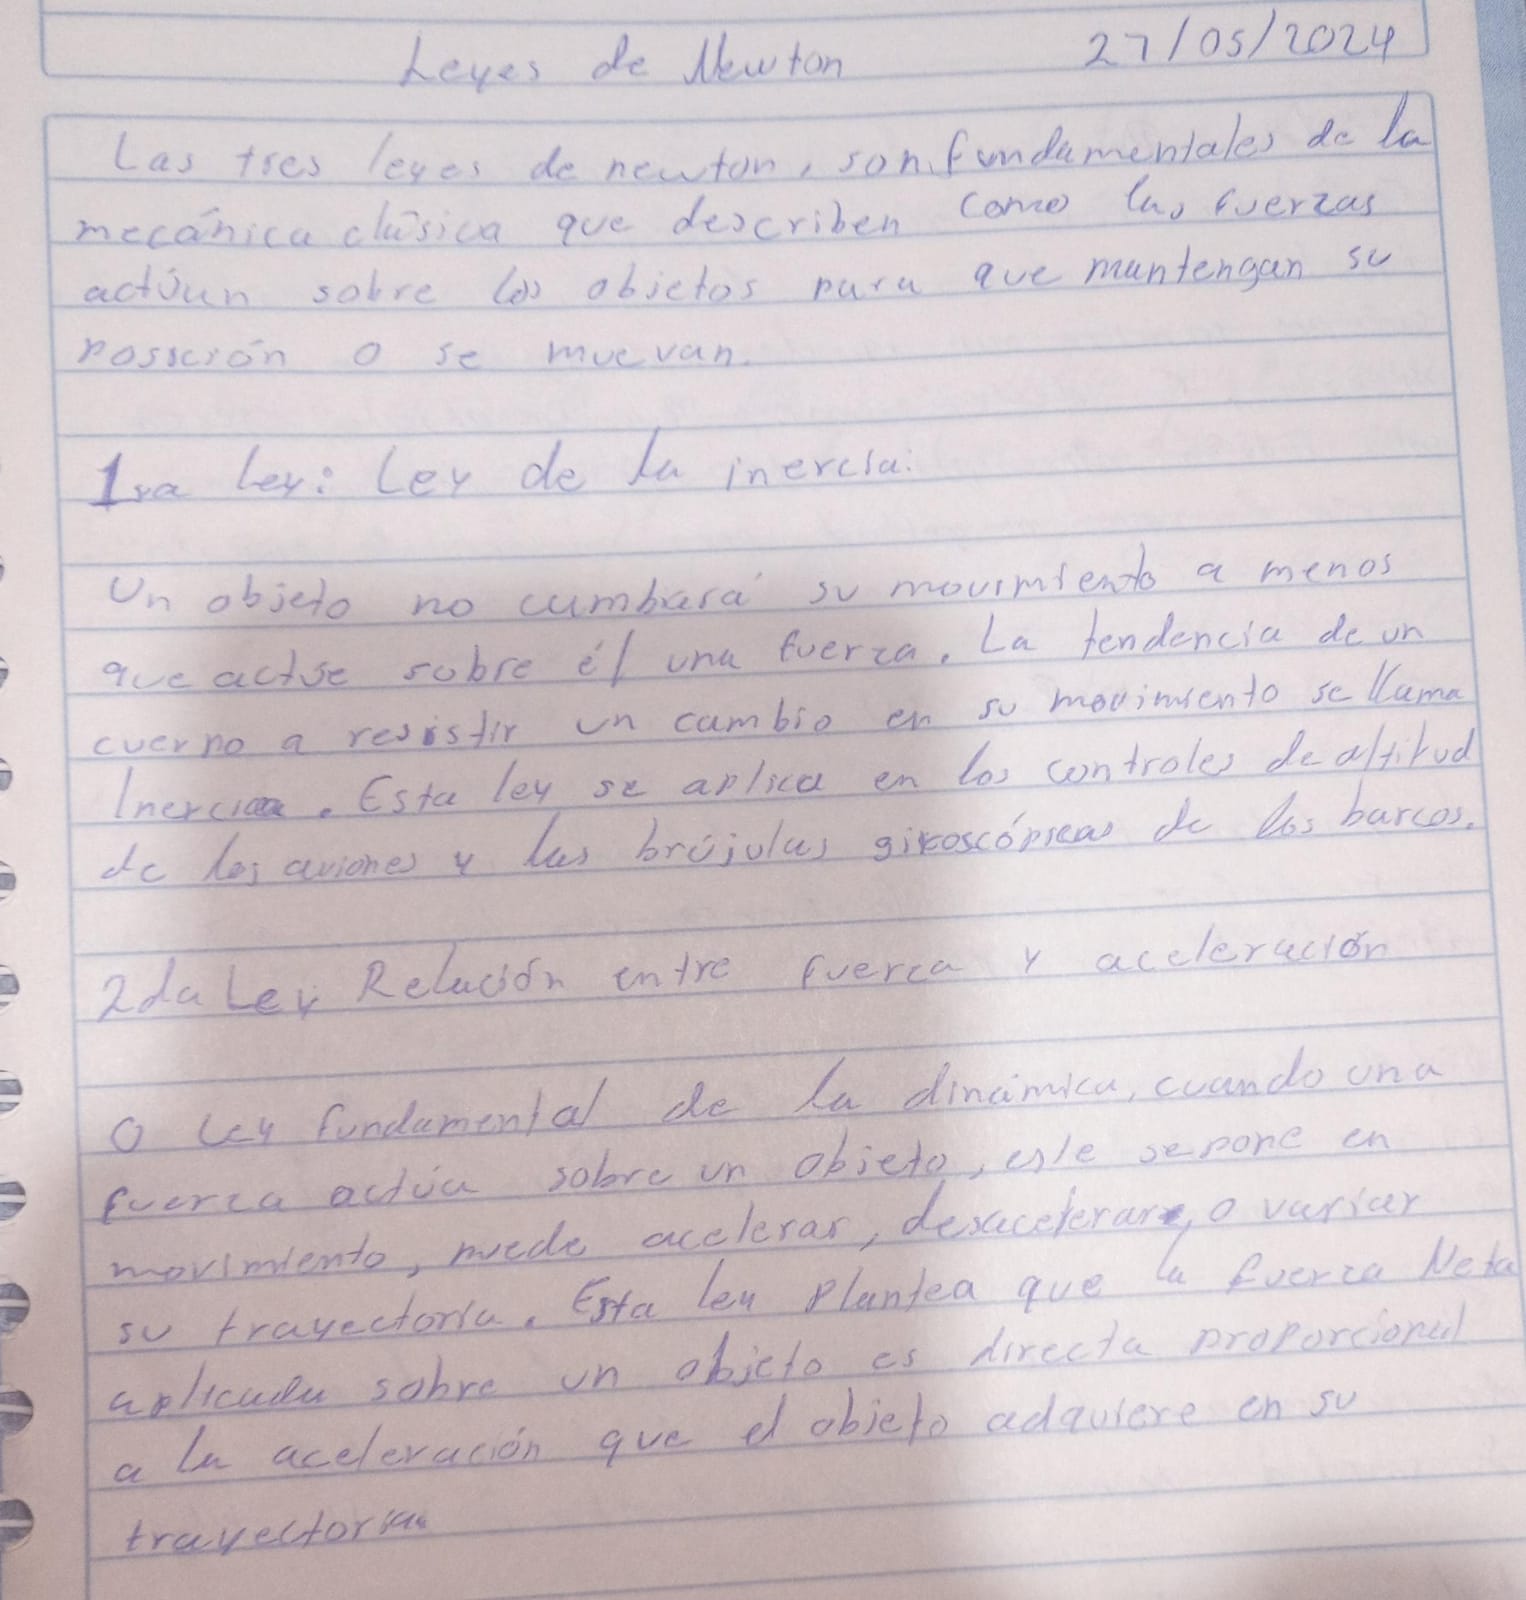 Leyes de Newton 27/05/2024
Las tres leyes de newton, son fundamentales de la
mecánica clásica que describen como las fuerzas
actúan sobre los objetos para que mantengan su
possición o se muevan.
1ra Ley: Ley de la inercia:
Un objeto no cambiará su movimiento a menos
que actúe sobre él una fuerza. La tendencia de un
cuerpo a resistir un cambio en su movimiento se llama
Inercia. Esta ley se aplica en los controles de altitud
de los aviones y las brújulas giroscópicas de los barcos.
2da Ley Relación entre fuerza y aceleración
O Ley fundamental de la dinámica, cuando una
fuerza actúa sobre un objeto, este se pone en
movimiento, puede acelerar, desacelerar, o variar
su trayectoria. Esta ley plantea que la fuerza Neta
aplicada sobre un objeto es directa proporcional
a la aceleración que el objeto adquiere en su
trayectoria.